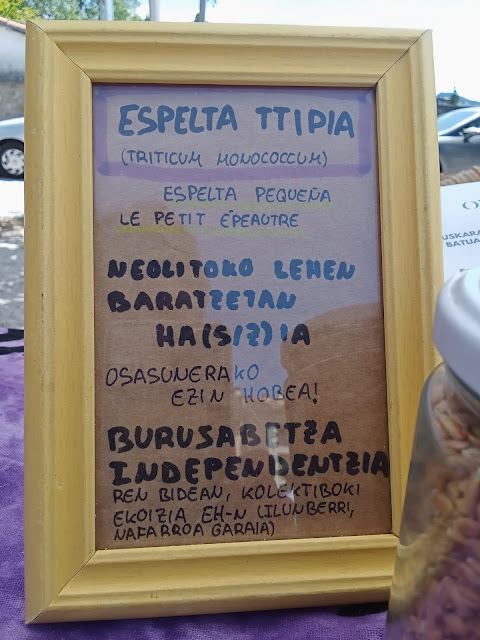 ESPELTA TTIPIA
(TRITICUM MONOCOCCUM)
ESPELTA PEQUEÑA
LE PETIT ÉPEAUTRE
NEOLITOKO LEHEN
BARATZETAN
HA(S/Z)IA
OSASUNERAKO
EZIN HOBEA!
BURUSABETZA
INDEPENDENTZIA
REN BIDEAN, KOLEKTIBOKI
EKOIZIA EH-N (ILUNBERRI,
NAFARROA GARAIA)
USKARA
BATUA